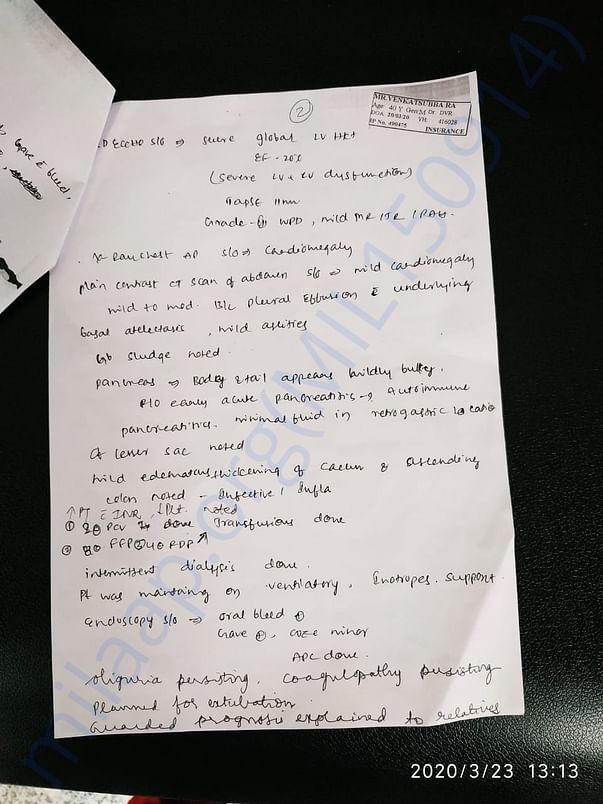 Gave c bleed,
2
MR.VENKATSUBBA RA
Age 40 Y Gen:M Dr DVR
DOA 20/03/20 YH: 416028
IP No. 490475
INSURANCE
2D ECCHO S/o ⇒ Severe global LV
EF - 20%
(Severe LV + RV dysfunction)
Tapse 11mm
Grade- , mild MR / TR / PAH.
X Ray chest AP S/o ⇒ Cardiomegaly
plain contrast CT scan of abdomen S/o ⇒ mild cardiomegaly
mild to mod. B/L pleural effusion c underlying
basal atelectasis, mild ascities
GB sludge noted.
pancreas ⇒ Body & tail appears mildly bulky.
R/o early acute pancreatitis → Autoimmune
pancreatitis. minimal fluid in retrogastric location
of lesser sac noted
mild edematous thickening of caecum & ascending
colon noted - Infective / Infla
↑PT c INR, ↓Plt. noted
① PCV done Transfusions done
② FFP RDP
intermittent dialysis done.
Pt was maintaing on ventilatory, Inotropes. support.
endoscopy S/o ⇒ oral bleed ⊕
Gave ⊕, ooze minor
APC done.
oliguria persisting, coagulopathy persisting
Planned for extubation.
Guarded prognosis explained to relatives
milaap.org(MIL150914)
2020/3/23 13:13